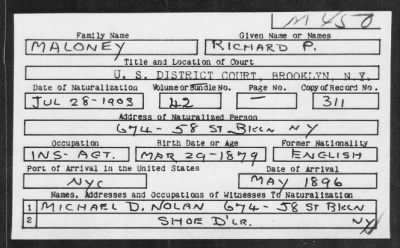 M 450
Family Name Given Name or Names
MALONEY RICHARD P.
Title and Location of Court
U. S. DISTRICT COURT, BROOKLYN, N.Y.
Date of Naturalization Volume or Bundle No. Page No. Copy of Record No.
JUL 28-1903 42 — 311
Address of Naturalized Person
674- 58 ST BKLN NY
Occupation Birth Date or Age Former Nationality
INS- AGT. MAR 29-1879 ENGLISH
Port of Arrival in the United States Date of Arrival
NYC MAY 1896
Names, Addresses and Occupations of Witnesses To Naturalization
1 MICHAEL D. NOLAN 674- 58 ST BKLN
2 SHOE D'LR. NY